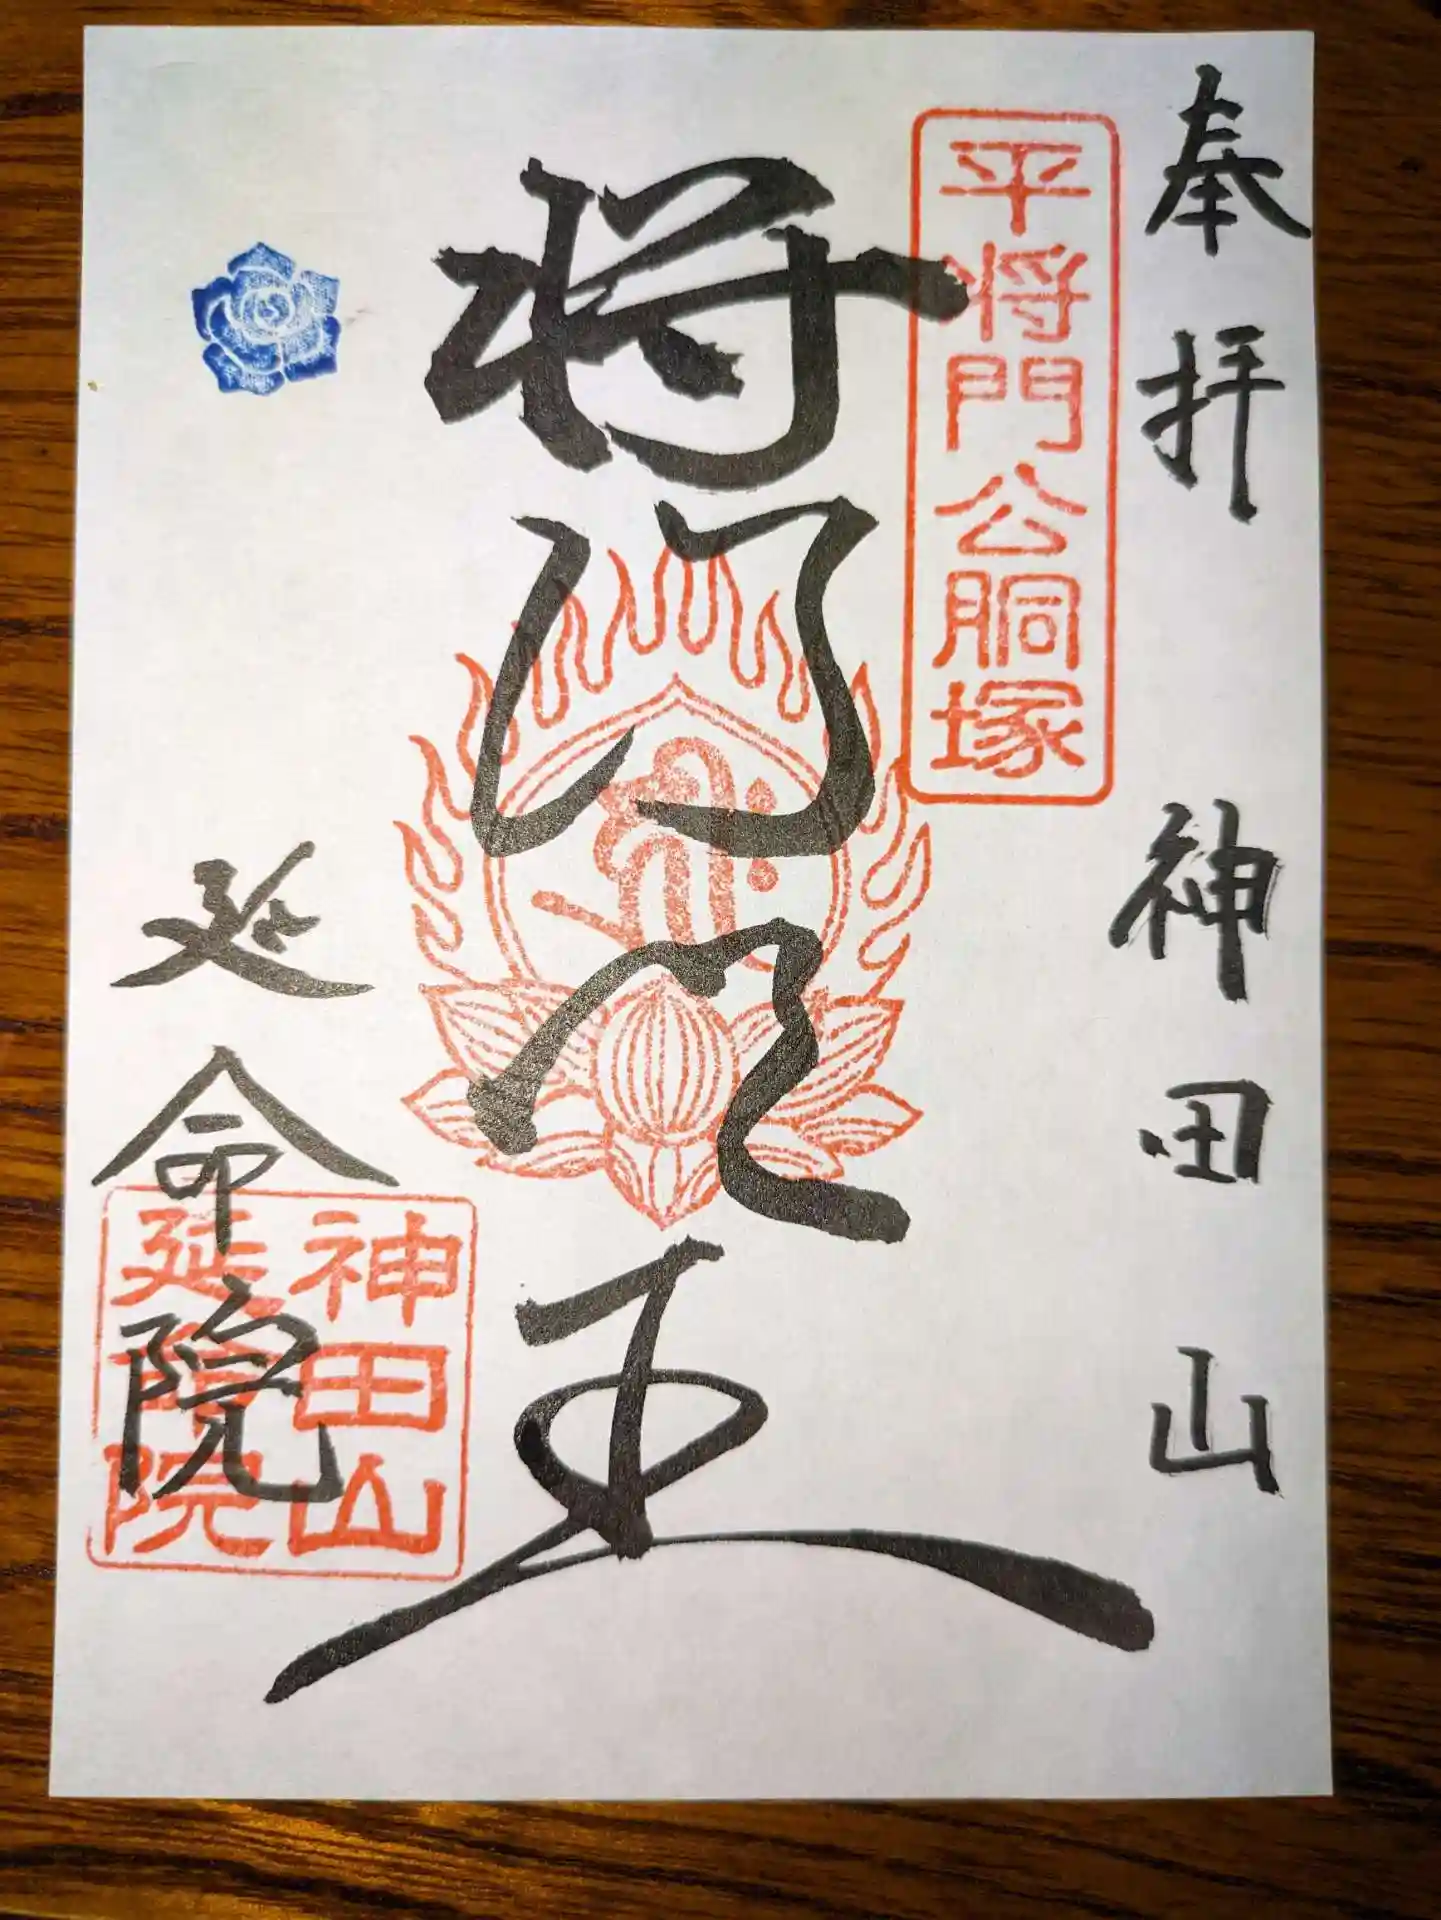 奉拝 神田山
平将門公胴塚
将門明王
延命院
神田山
延命院